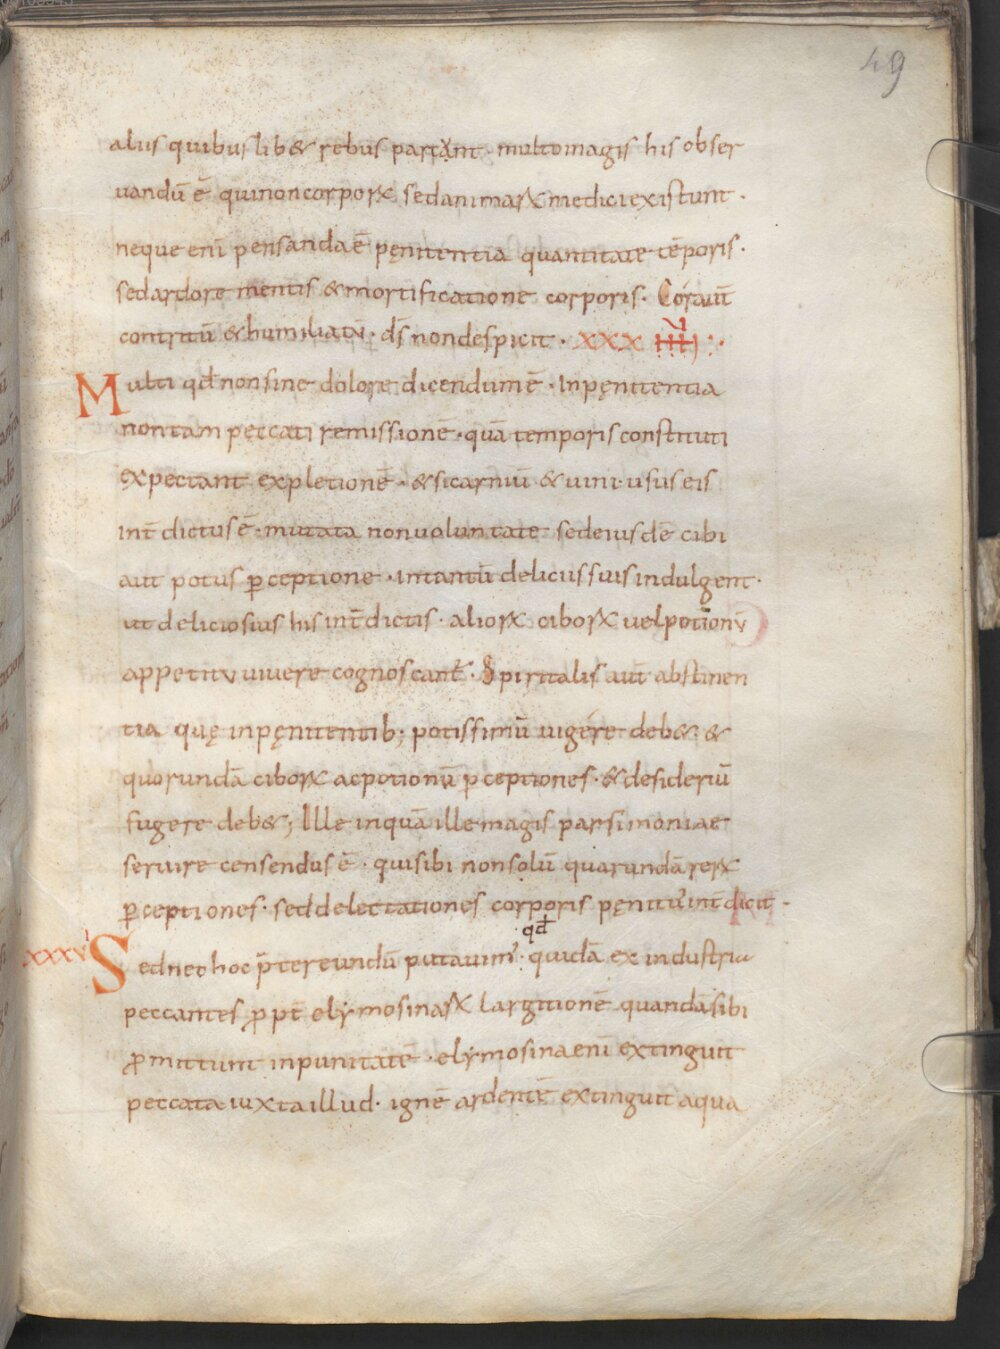 49
aliis quibuslib& rebus partiant · multomagis his obser
uandū ē quinoncorporꝝ sedanimarꝝ medici existunt ·
neque enī pensanda ē pęnitentia quantitate tēporis ·
sedardore mentis & mortificatione corporis · Cor aut̄
contritū & humiliatū · d̄s nondespicit · XXXIIII
Multi qđ nonsine dolore dicendum ē · Inpęnitentia
nontam peccati remissionē · quā temporis constituti
expectant expletionē · & sicarniū & uini · usus eis
int̄dictus ē · mutata nonuoluntate sedeiusdē cibi
aut potus ꝑceptione · intantū deliciis suis indulgent ·
ut deliciosius his int̄dictis · aliorꝝ ciborꝝ uelpotionū
appetitu uiuere cognoscant̄ · Spiritalis aut̄ abstinen
tia quę inpęnitentib; potissimū uigere deb& &
quorundā ciborꝝ acpotionū ꝑceptiones · & desideriū
fugere deb&; Ille inquā ille magis parsimoniae
seruire censendus ē · quisibi nonsolū quarundā rerꝝ
ꝑceptiones · seddelectationes corporis pęnitus int̄dicit ·
qđ
XXXV Sednechoc p̄tereundū putauim᾽ · quidā ex industria
peccantes ꝓpt̄ elymosinarꝝ largitionē quandā sibi
ꝓmittunt inpunitatē · elymosina enī extinguit
peccata iuxta illud · ignē ardentē extinguit aqua